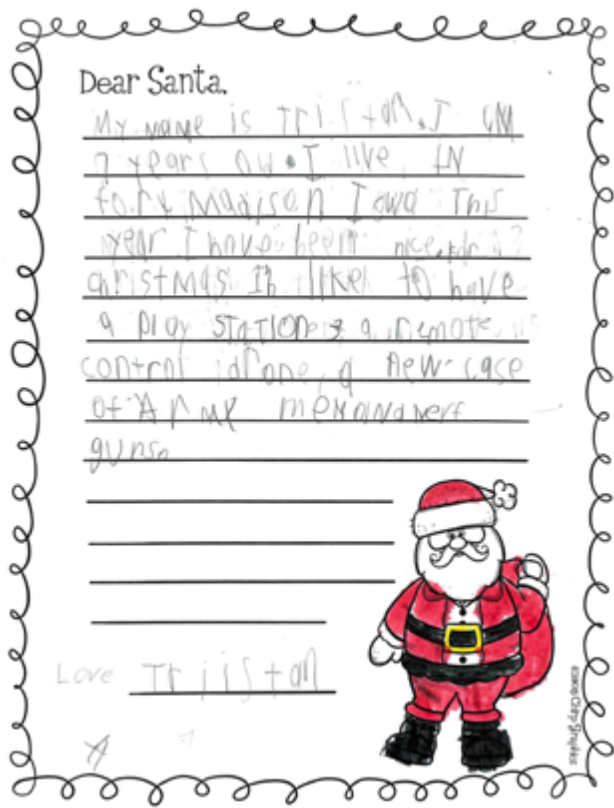 Dear Santa,
My name is Tristan. I am
7 years old. I live in
fort Madison Iowa This
year I have been nice. for
christmas Id like to have
a play station 3 a remote
control drone, a new case
of Army men and nerf
guns.
Love Tristan